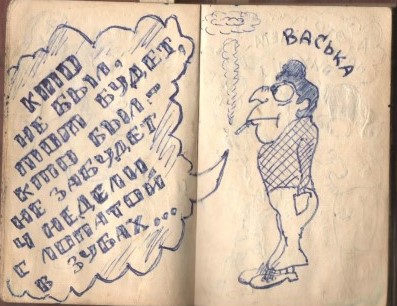 КТО
НЕ БЫЛ,
ТОТ БУДЕТ,
КТО БЫЛ -
НЕ ЗАБУДЕТ
4 НЕДЕЛИ
С ЛОПАТОЙ
В ЗУБАХ...
ВАСЬКА